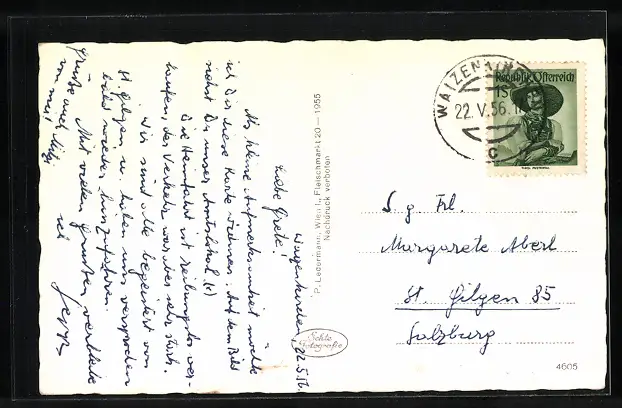 Waizenkirchen, 22.5.56.
Liebe Grete!
Als kleine Aufmerksamkeit möchte
ich Dir diese Karte widmen. Auf dem Bild
siehst Du unser Amtslokal (x)
Die Heimfahrt ist reibungslos ver-
laufen, der Verkehr war aber sehr stark.
Wir sind alle begeistert von
St. Gilgen u. haben uns versprochen
bald wieder hinzufahren.
Mit vielen Grüßen verbleibe
ich
Grüße auch
von mir
P. Ledermann, Wien I., Fleischmarkt 20—1955
Nachdruck verboten
Echte
Fotografie
WAIZENKIRCHEN
22.V.56.
C
Republik Österreich
1S
S. g. Frl.
Margarete Aberl
St. Gilgen 85
Salzburg
4605